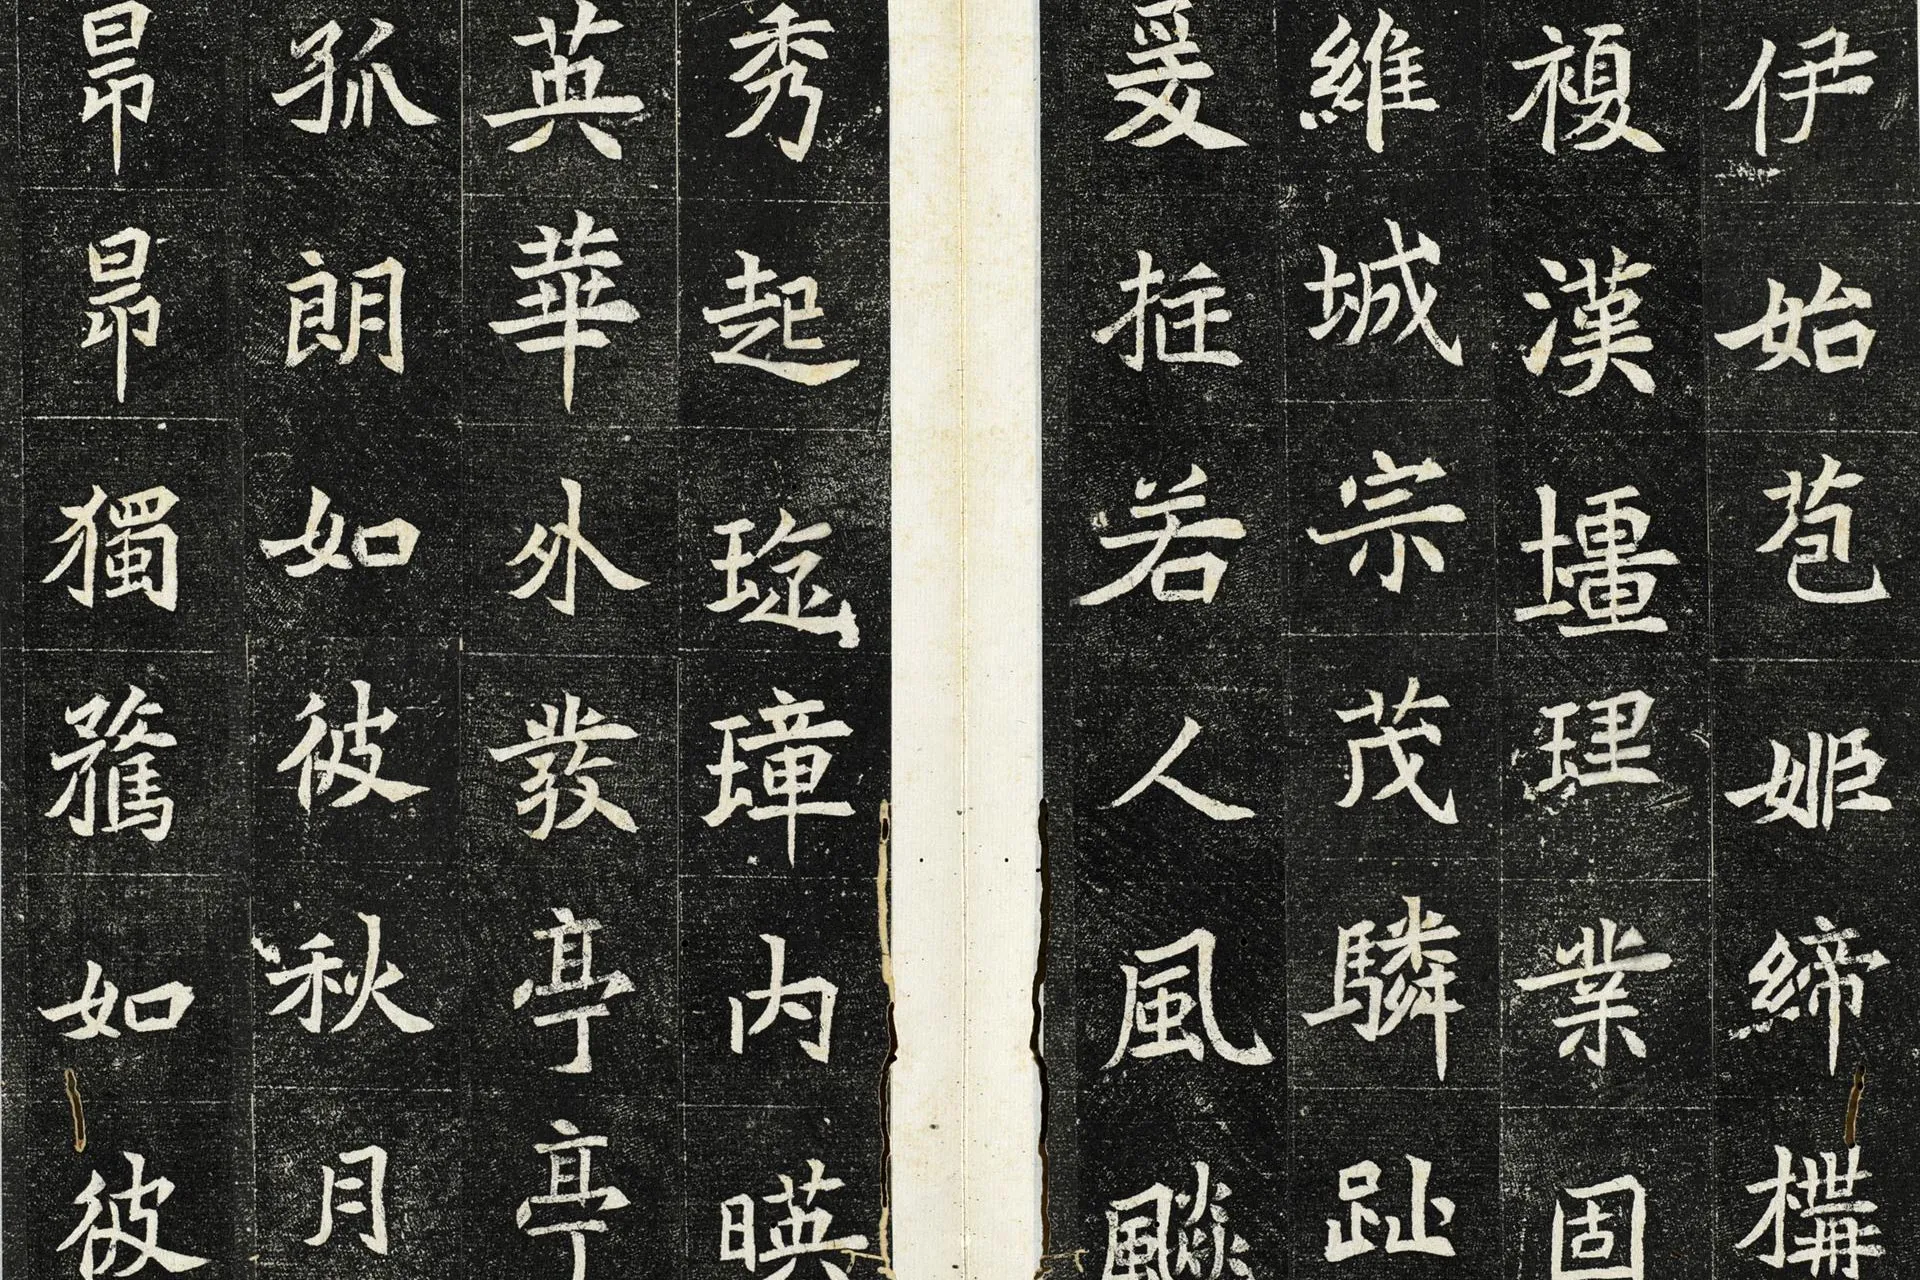 伊始苞姬締構
複漢壃理業固
維城宗茂驎趾
爰挺若人風飈
秀起琁璋内暎
英華外發亭亭
孤朗如彼秋月
昂昂獨騖如彼